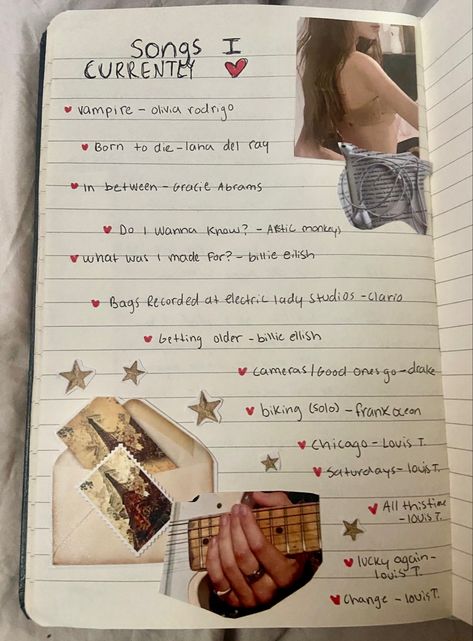 Songs I
CURRENTLY
vampire - olivia rodrigo
Born to die - lana del ray
In between - Gracie Abrams
Do I wanna know? - Artic monkeys
what was I made for? - billie eilish
Bags Recorded at electric lady studios - clario
Getting older - billie eilish
cameras/Good ones go - drake
biking (solo) - frank ocean
Chicago - Louis T.
Saturdays - louis T.
All this time
- louis T.
lucky again -
louis T.
change - louis T.